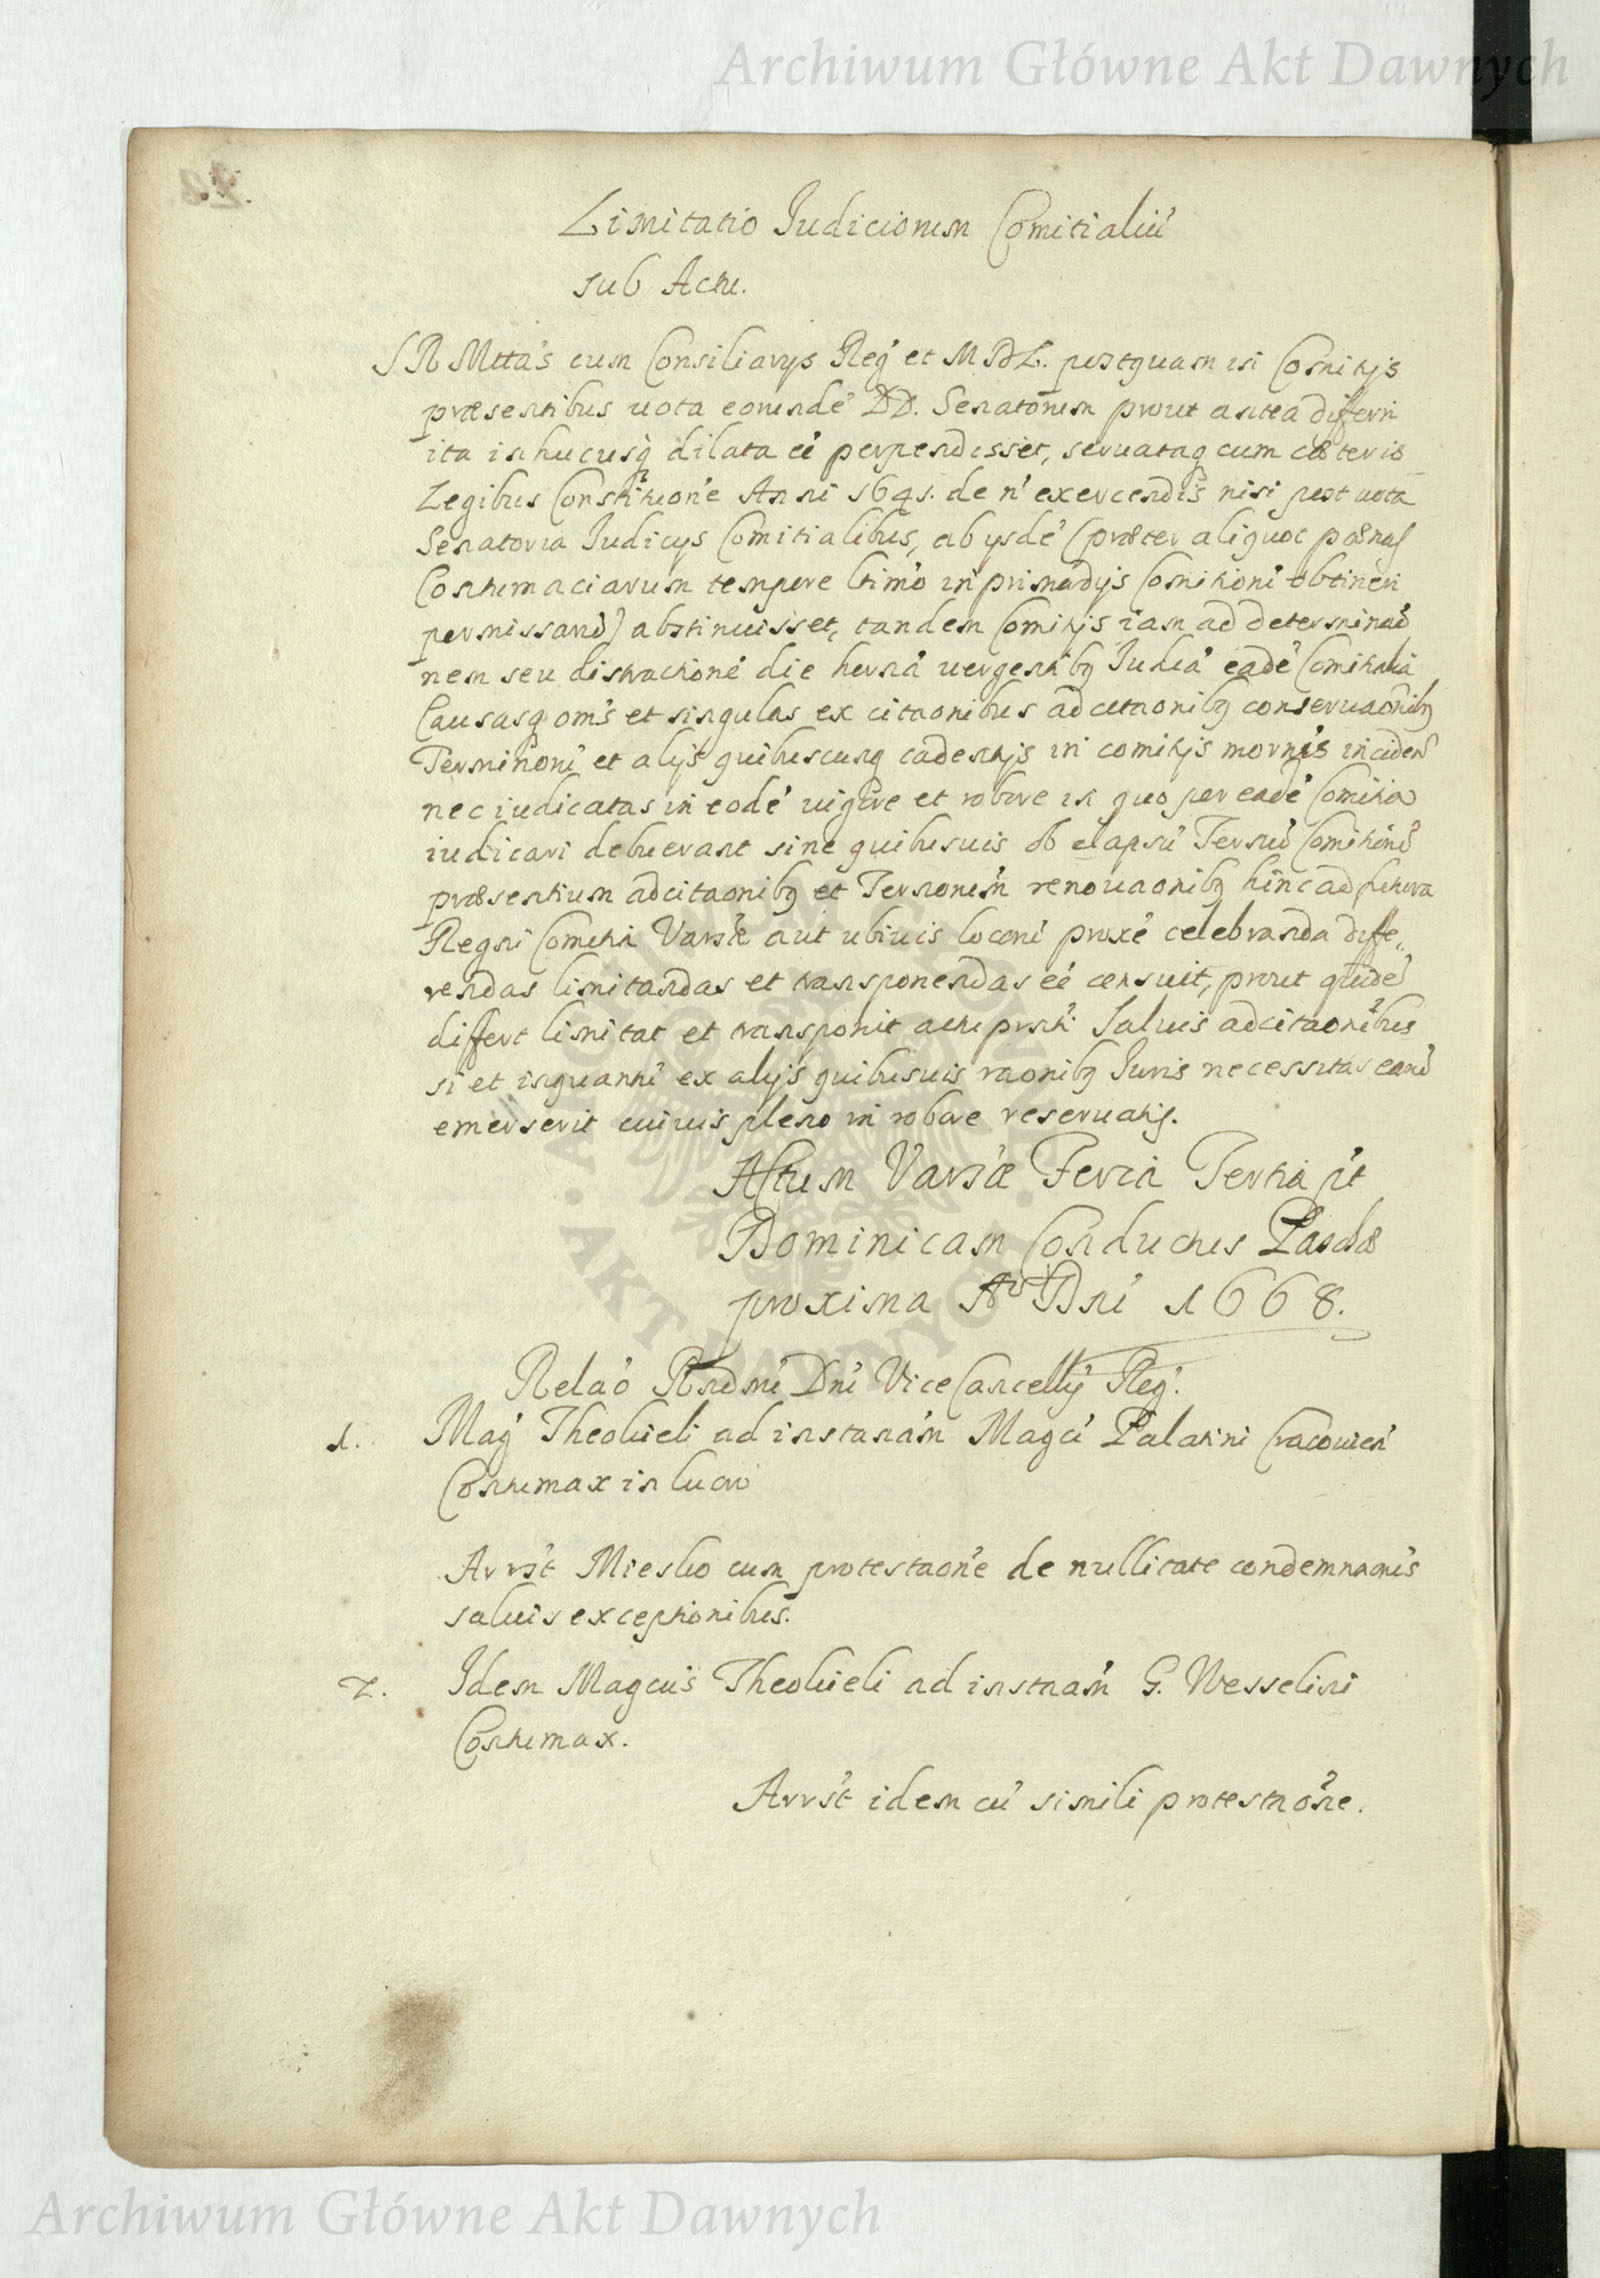 Archiwum Główne Akt Dawnych
Limitatio Judiciorum Comitialiũ
sub Actu.
S R Mttas cum Consiliarys Reg et M D L. postquam in Comitijs
præsentibus uota eorundẽ DD. Senatorum prout antea differri
ita in hucusq dilata eẽ perpendisset, seruataq cum cæteris
Legibus Constitutione Anni 1641. de ñ exercendis nisi post uota
Senatoria Judicys Comitialibus, ab ysdẽ (præter aliquot pænas
Contumaciarum tempore in primordijs Comitiorũ obtineri
permissarũ) abstinuisset, tandem Comitijs iam ad determina͠o
nem seu distractionẽ die herna uergentibq Judicia eadẽ Comitialia
Causasq om̃s et singulas ex cita͠onibus adcita͠onibq conserua͠onibq
Terminorũ et alijs quibuscunq cadentijs in comitijs incideñ
nec iudicatas in eodẽ uigore et robore in quo per eadẽ Comitia
iudicari debuerant sine quibusuis ob elapsũ Comitiorũ
præsentium adcita͠onibq et renoua͠onibq hinc ad futura
Regni Comitia Varsæ aut ubiuis locorũ proxẽ celebranda diffe„
rendas limitandas et transponendas eẽ censuit, prout quidẽ
differt limitat et transponit actu prnti. Saluis adcita͠onibus
si et inquantũ ex alijs quibusuis ra͠onibq Juris necessitas earũ
emerserit cuiuis pleno in robore reseruatis.
Actum Varsæ Feria Tertia pt
Dominicam Conductus Paschæ
proxima Aº Dni 1668.
Rela͠o Rndmi Dni ViceCancellij Reg.
1. Mag Theolieli ad instanãm Magci Palatini Cracouien
Contumax in lucro
Arrst Miesko cum protesta͠one de nullitate condemna͠onis
saluis exceptionibus.
2. Idem Magcus Theolieli ad instnãm G. Wesselini
Contumax.
Arrst idem cũ simili protesta͠one.
Archiwum Główne Akt Dawnych